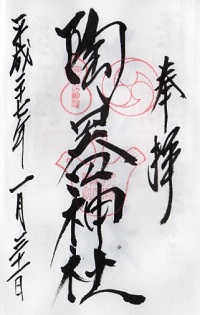 奉拝
陶器神社
平成二十七年一月三十一日